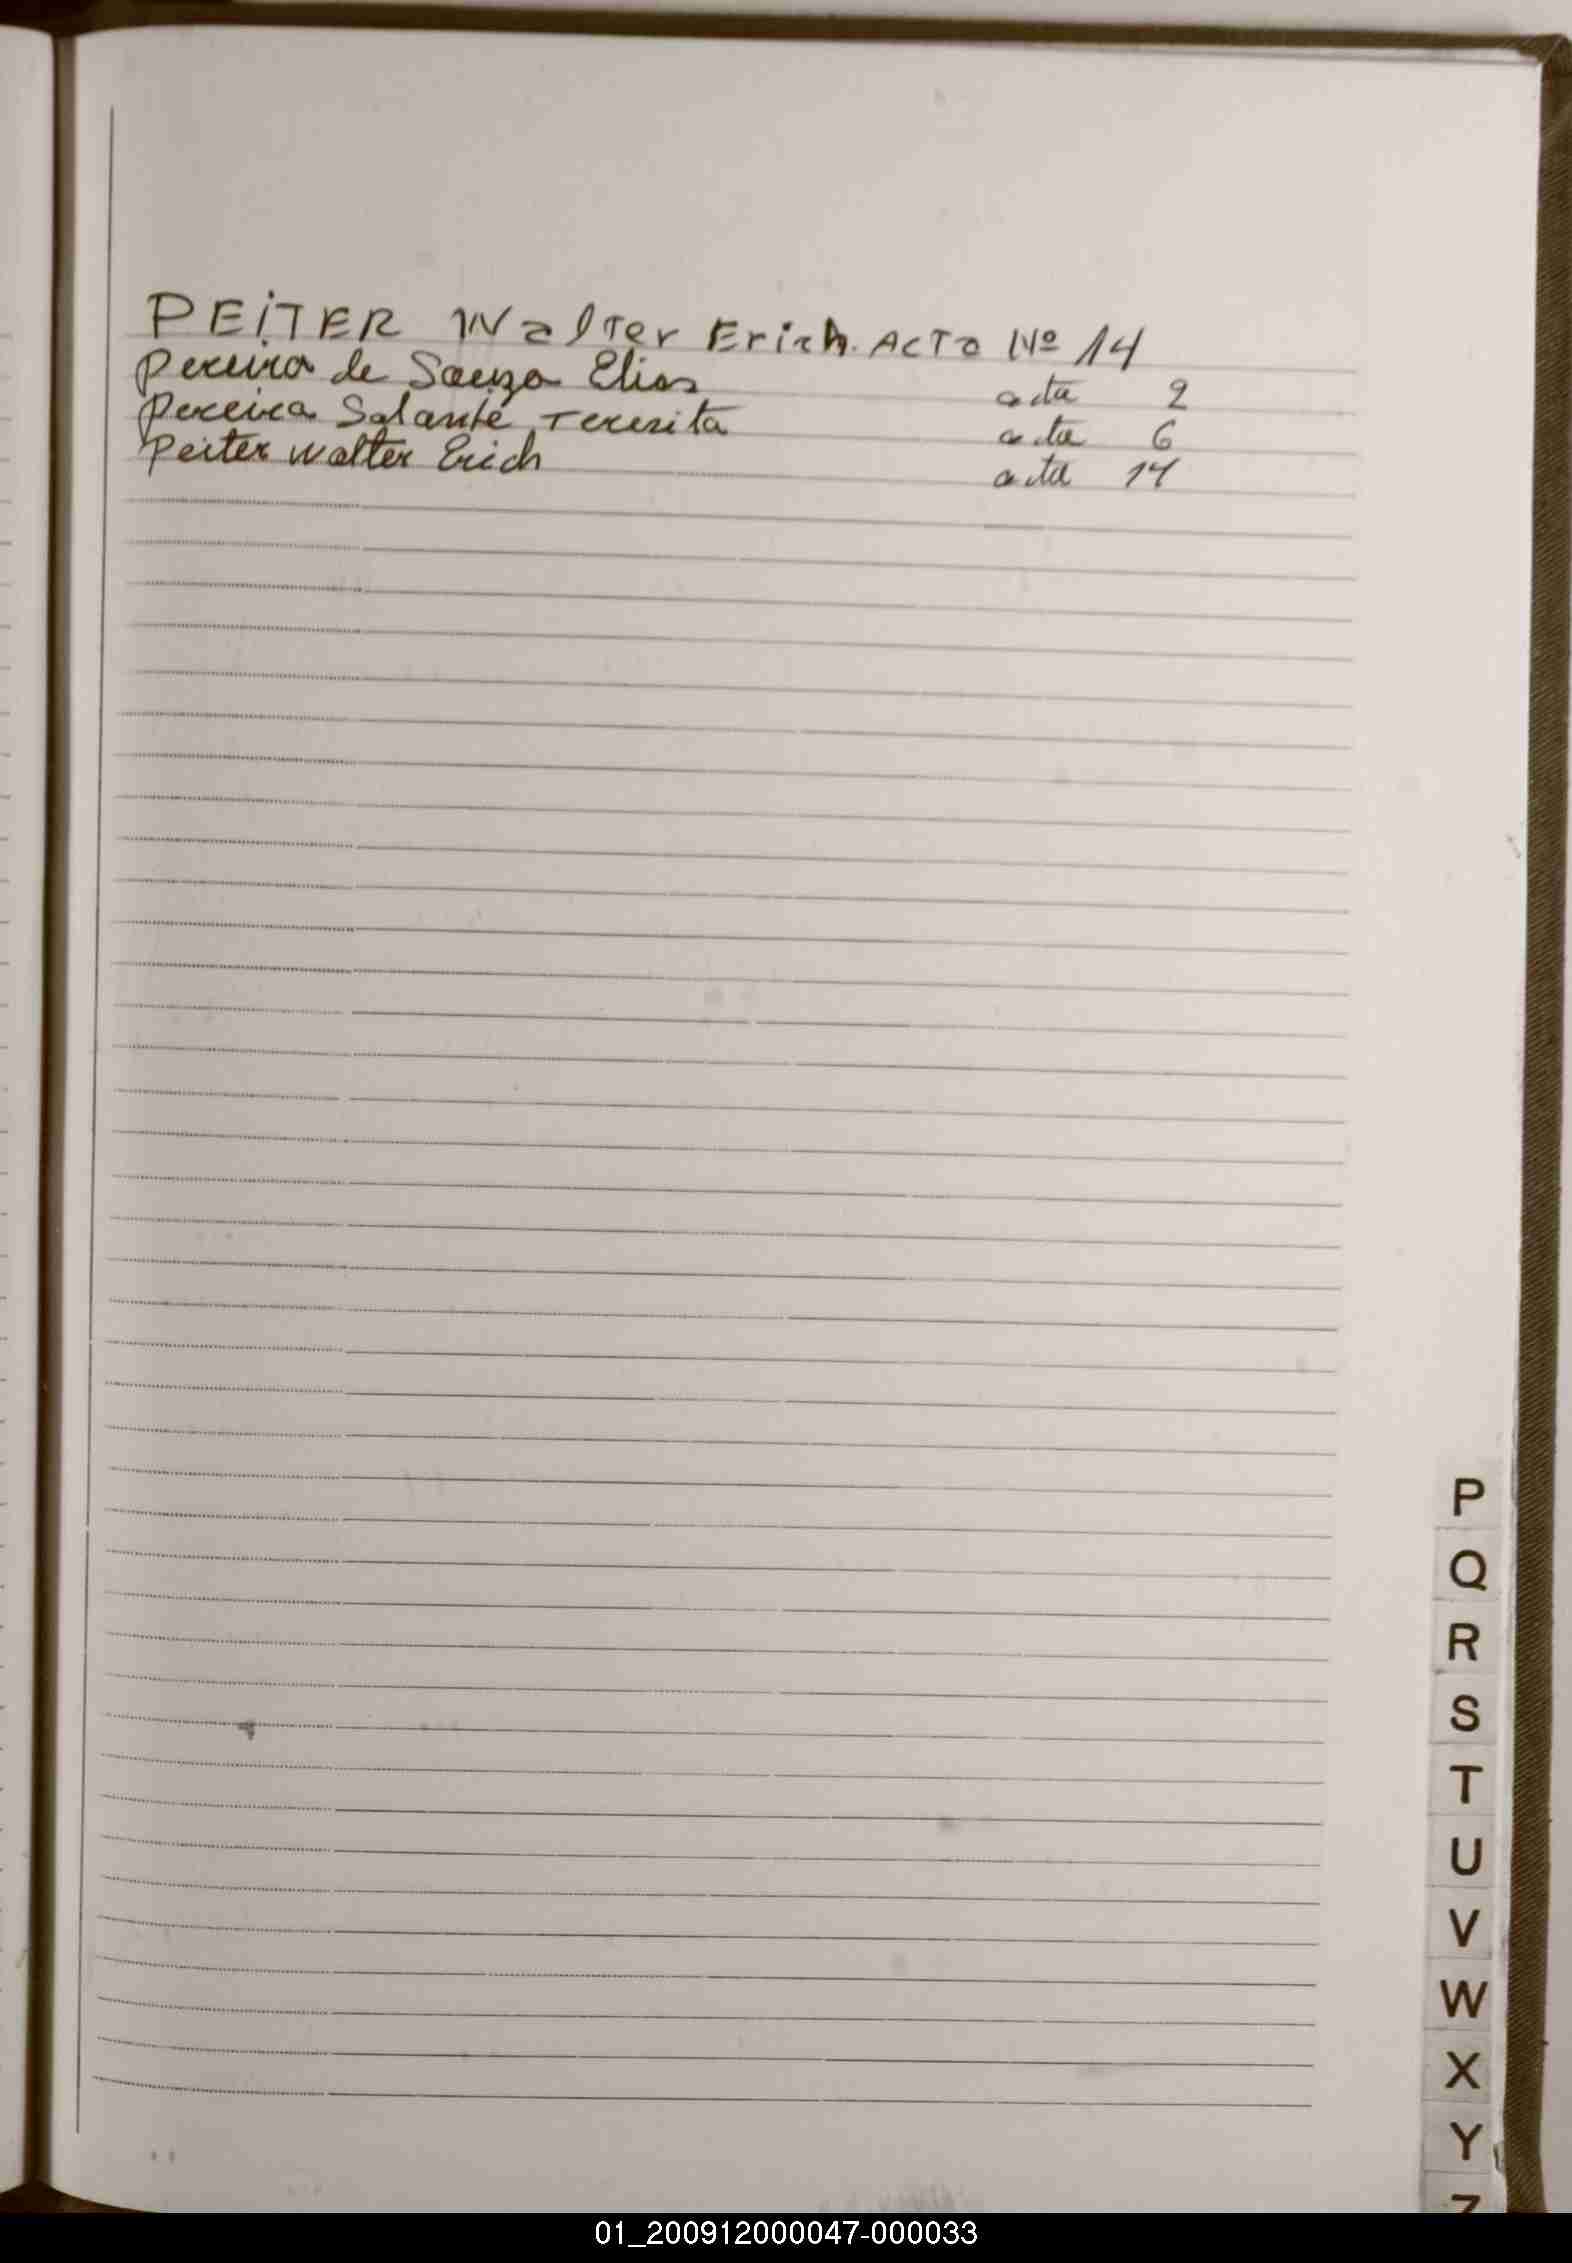 PEITER Walter Erich. ACTO Nº 14
Pereira de Souza Elias acta 2
Pereira Solante Teresita acta 6
Peiter Walter Erich acta 14
P
Q
R
S
T
U
V
W
X
Y
Z
01_200912000047-000033